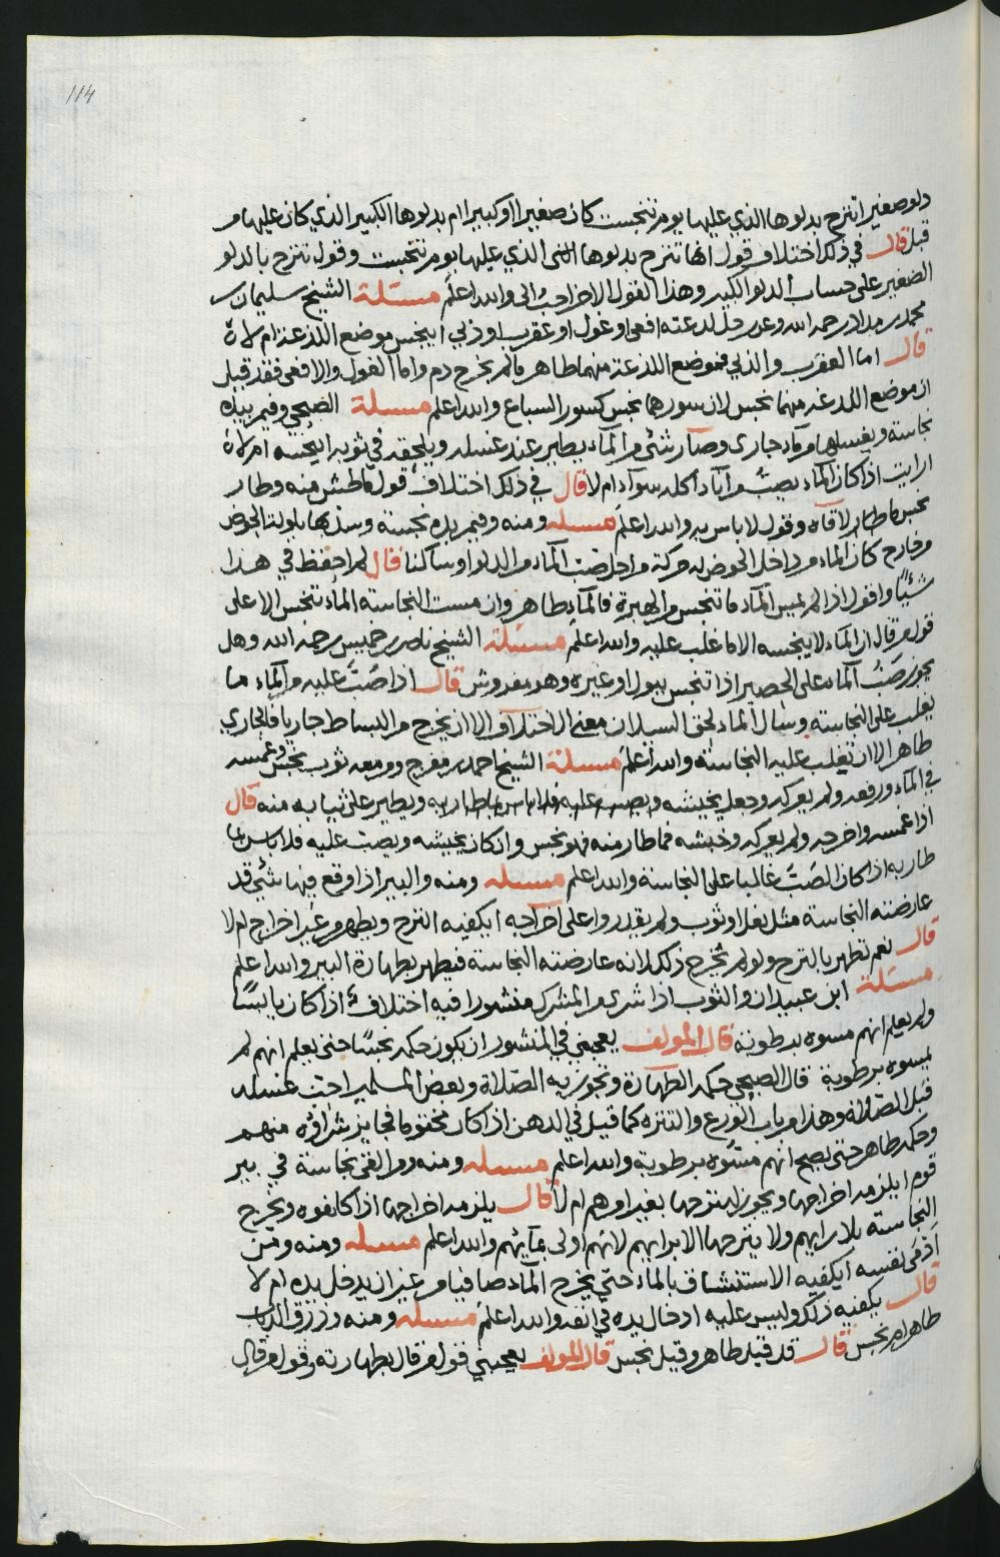 114
دلو صغير اتنزح بدلوها الذي عليها يوم تنجست كان صغيرا او كبيرا ام بدلوها الكبير الذي كان عليها من
قبل قال في ذلك اختلاف قول انها تنزح بدلوها الذي عليها يوم تنجست وقول تنزح بالدلو
الصغير على حساب الدلو الكبير وهذا القول الاخر احب الى والله اعلم مسئلة الشيخ سليمان بن
محمد بن مداد رحمه الله وعن رجل لدعته افعى او غول او عقرب او ذبي اينجس موضع اللدغة ام لا
قال اما العقرب والذبي فموضع اللدغة منهما طاهر ما لم يخرج دم واما الغول والافعى فقد قيل
ان موضع اللدغة منهما نجس لان سورهما نجس كسور السباع والله اعلم مسئلة الصبحي وفيمن بيده
نجاسة ويغسلها من ماء جاري وصار شئ من الماء يطير عند غسله ويلحقه في ثوبه اينجسه ام لا
ارايت اذا كان الماء يصب من اناء اكله سواء ام لا قال في ذلك اختلاف قول ما طش منه وطار
نجس ما طهر لاقاه وقول لا باس به والله اعلم مسئله ومنه وفيمن يده نجسة وسد بها بلوله الحوض
من خارج كان الماء من داخل الحوض له حركة من اجل صب الماء من الدلو او ساكنا قال لم احفظ في هذا
شيئا واقول اذا لم يمس الماء ما تنجس من فالماء طاهر وان مست النجاسة الماء تنجس الا على
قول من قال ان الماء لا ينجسه الا ما غلب عليه والله اعلم مسئلة الشيخ ناصر بن خميس رحمه الله وهل
يجوز صب الماء على الحصير اذا تنجس ببول او غيره وهو مفروش قال اذا صب عليه من الماء ما
يغلب على النجاسة وسال الماء لحق السيلان معنى الاختلاف الا ان يخرج من البساط جاريا فالجاري
طاهر الا ان تغلب عليه النجاسة والله اعلم مسئلة الشيخ احمد بن مفرج ومن معه ثوب نجس وغمسه
في الماء ورفعه ولم يعركه وجعل يخبشه ويصب عليه فلا باس بما طار به ويطير على ثيابه منه قال
اذا غمسه واخرجه ولم يعركه وخبشه فما طار منه فهو نجس وان كان يخبشه ويصب عليه فلا باس بما
طار به اذا كان الصب غالبا على النجاسة والله اعلم مسئله ومنه والبير اذا وقع فيها شئ قد
عارضته النجاسة مثل نعل او ثوب ولم يقدروا على اخراجه ايكفيه النزح ويطهر من غير اخراج ام لا
قال نعم تطهر بالنزح ولو لم تخرج ذلك لانه عارضته النجاسة فيطهر بطهارة البير والله اعلم
مسئلة ابن عبيدان والثوب اذا شرى من المشرك منشورا فيه اختلاف اذا كان يابسا
ولم يعلم انهم مسوه برطوبة قال المولف يعجبني في المنشور ان يكون حكمه نجسا حتى يعلم انهم لم
يمسوه برطوبة قال الصبحي حكمه الطهارة وتجوز به الصلاة وبعض المسلمين احب غسله
قبل الصلاة وهذا من باب الورع والتنزه كما قيل في الدهن اذا كان مختوما فجايز شراؤه منهم
وحكمه طاهر حتى يصح انهم مسوه برطوبة والله اعلم مسئله ومنه ومن القى نجاسة في بير
قوم ايلزمه اخراجها ويجوز له ينزحها بغير امرهم ام لا قال يلزمه اخراجها اذا كانفوه ويخرج
النجاسة بلا رايهم ولا ينزحها الا برايهم لانهم اولى بمآئهم والله اعلم مسئله ومنه ومن
اذمى نفسه ايكفيه الاستنشاف بالماء حتى يخرج الماء صافيا من غير ان يدخل يده ام لا
قال يكفيه ذلك وليس عليه ادخال يده في انفه والله اعلم مسئله ومنه وزرق الدباب
طاهر ام نجس قال قد قيل طاهر وقيل نجس قال المولف يعجبني قول من قال بطهارته وقول من قال